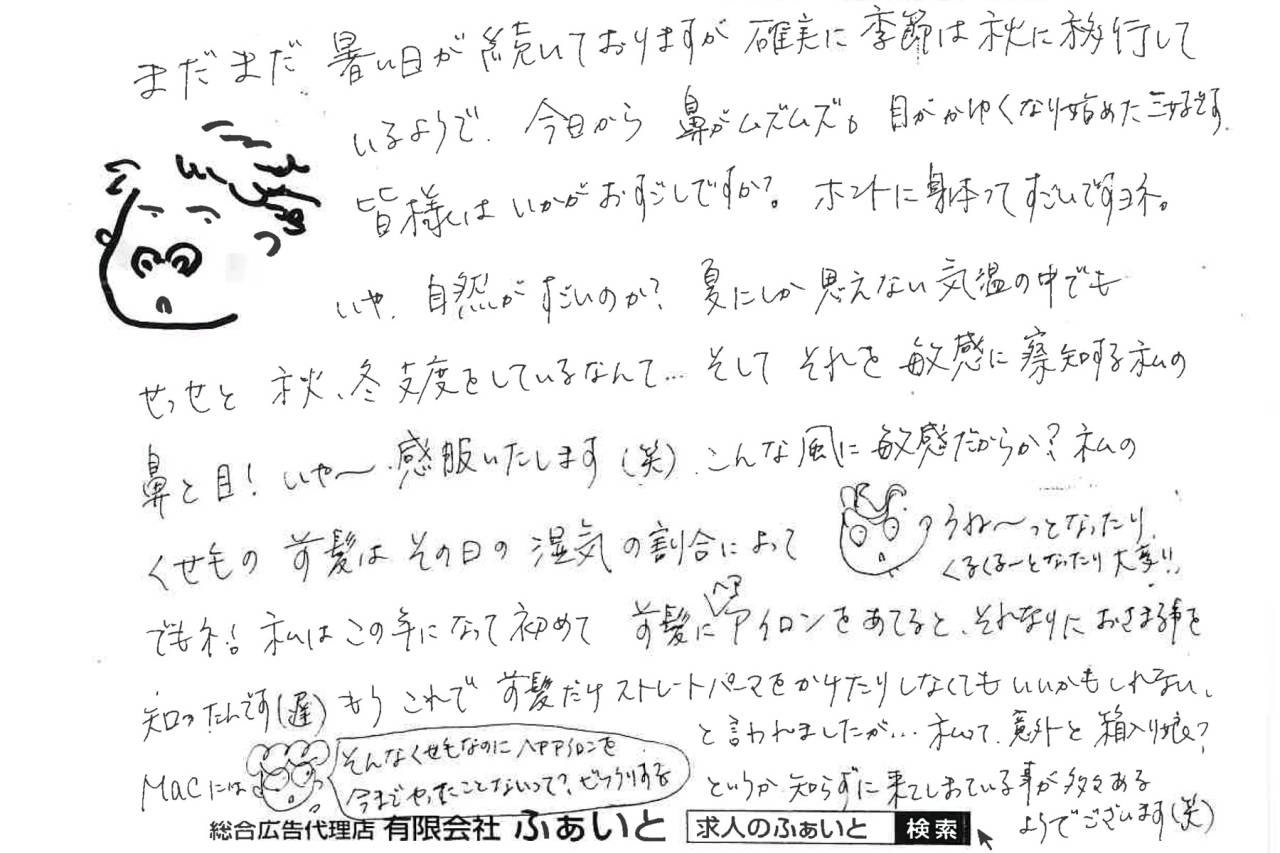 まだまだ 暑い日が 続いておりますが 確実に 季節は 秋に 移行して
いるようで、今日から 鼻がムズムズ。目がかゆくなり始めた三好です。
皆様は いかがおすごしですか？ ホントに身体ってすごいですヨネ。
いや、自然がすごいのか？ 夏にしか思えない 気温の中でも
せっせと 秋、冬支度をしているなんて… そして それを 敏感に 察知する私の
鼻と目！ いや〜 感服いたします（笑）。こんな風に敏感だからか？ 私の
くせ毛の 前髪は その日の 湿気の割合によって
うね〜っとなったり、
くるくるーとなったり 大変!!
でもネ！ 私は この年になって 初めて 前髪に ヘアアイロンをあてると、それなりにおさまる事を
知ったんです（遅）もう これで 前髪だけ ストレートパーマをかけたりしなくてもいいかもしれない。
MACには
そんなくせ毛なのに ヘアアイロンを
今までやったことないって？ びっくりする
と言われましたが… 私って、意外と 箱入り娘？
というか 知らずに 来てしまっている事が多々ある
ようでございます（笑）
総合広告代理店 有限会社 ふぁいと 求人のふぁいと 検索